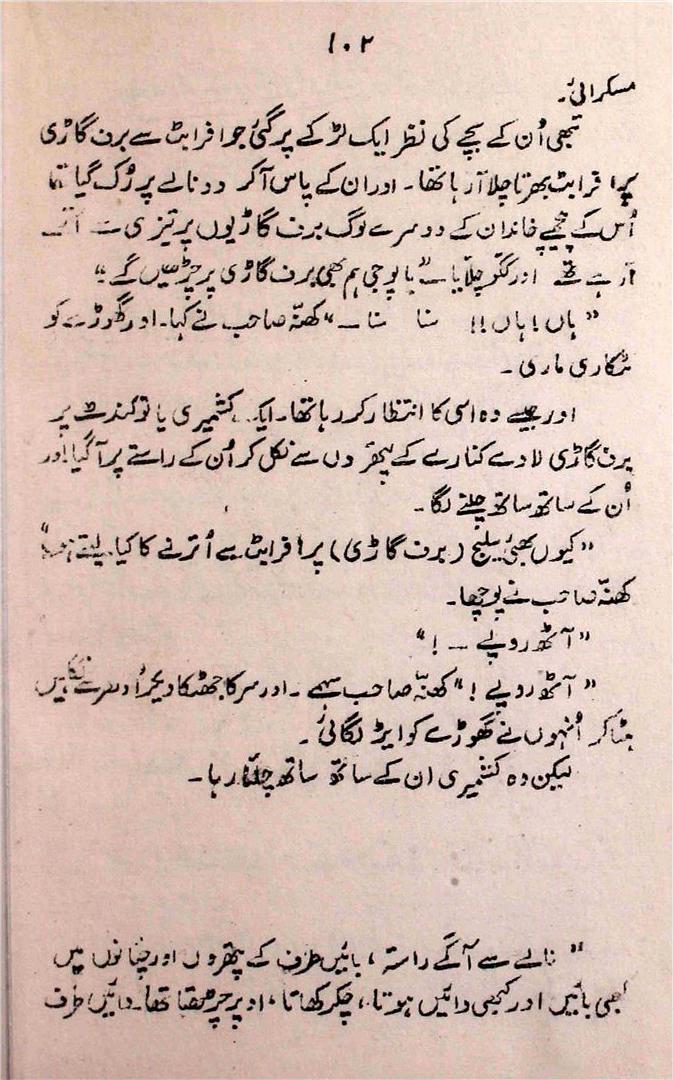 ۱۰۲
مسکرائی۔
تبھی اُن کے بچے کی نظر ایک لڑکے پر گئی جو افرابٹ سے برف گاڑی
پر افرابٹ بھرتا چلا آ رہا تھا۔ اور ان کے پاس آ کر وہ نالے پر رُک گیا تھا
اُس کے پیچھے خاندان کے دوسرے لوگ برف گاڑیوں پر تیزی سے اُترتے
آ رہے تھے اور گگو چلّایا ــ "باپو جی ہم بھی برف گاڑی پر چڑھیں گے"
"ہاں! ہاں!! نا نا ــ" کھنّہ صاحب نے کہا۔ اور گھوڑے کو
ٹٹکاری ماری۔
اور جیسے وہ اسی کا انتظار کر رہا تھا۔ ایک کشمیری یاتو کندھے پر
برف گاڑی لادے کنارے کے پتھروں سے نکل کر اُن کے راستے پر آ گیا اور
اُن کے ساتھ ساتھ چلنے لگا۔
"کیوں بھئی سلیج (برف گاڑی) پر افرابٹ سے اُترنے کا کیا لیتے ہو"
کھنّہ صاحب نے پوچھا۔
"آٹھ روپے ــ!"
"آٹھ روپے!" کھنّہ صاحب سہمے۔ اور سر کا جھٹکا دیکر اُدھر سے نگاہیں
ہٹا کر اُنہوں نے گھوڑے کو ایڑ لگائی۔
لیکن وہ کشمیری ان کے ساتھ ساتھ چلتا رہا۔
"نالے سے آگے راستہ، بائیں طرف کے پتھروں اور چٹانوں میں
کبھی بائیں اور کبھی دائیں ہوتا، چکر کھاتا، اوپر چڑھتا تھا۔ دائیں طرف